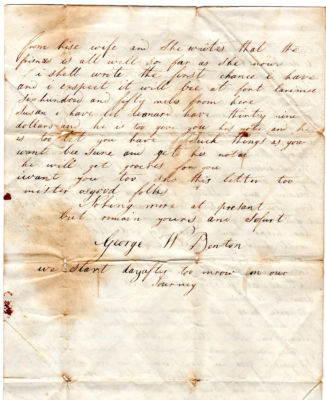 from hise wife and She writes that the
friends is all well so far as she nows
i shell wrote the first chance i have
and i exspect it will bee at fort laremise
Sixhundred and fifty miles from here
Susan i have let leonard have thirty nine
dollars and he is too give you his note and he
is too you have Such things as you
want bee Sure and get his note
he will get for you
i want you too she this letter too
mister osgood folks
Nothing more at present
but remain yours and
George W Denton
we Start dayafter too morow on our
Journey